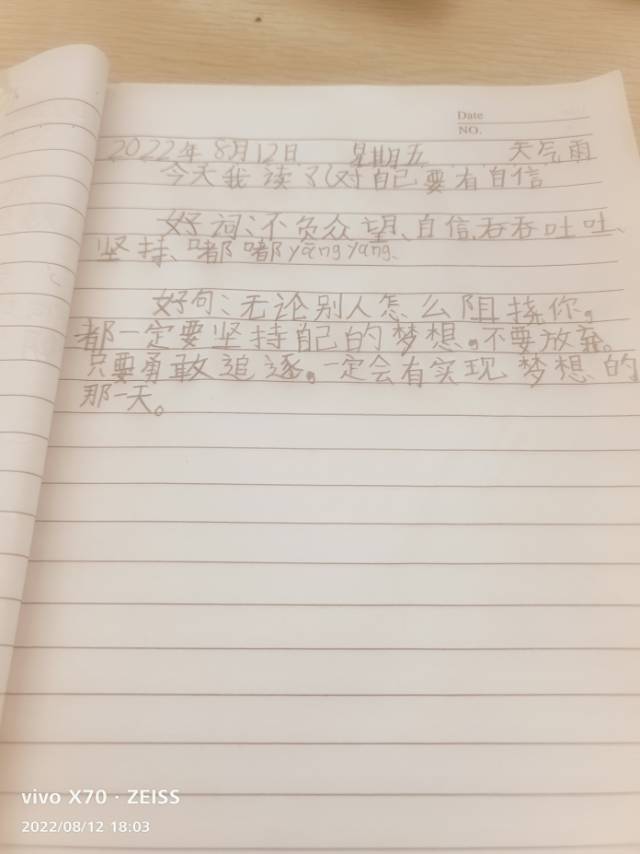 Date
NO.
2022年8月12日 星期五 天气雨
今天我读了《对自己要有自信
好词:不负众望、自信、吞吞吐吐、
坚持、嘟嘟yāngyang、
好句:无论别人怎么阻挠你,
都一定要坚持自己的梦想。不要放弃。
只要勇敢追逐。一定会有实现梦想的
那一天。
vivo X70 · ZEISS
2022/08/12 18:03